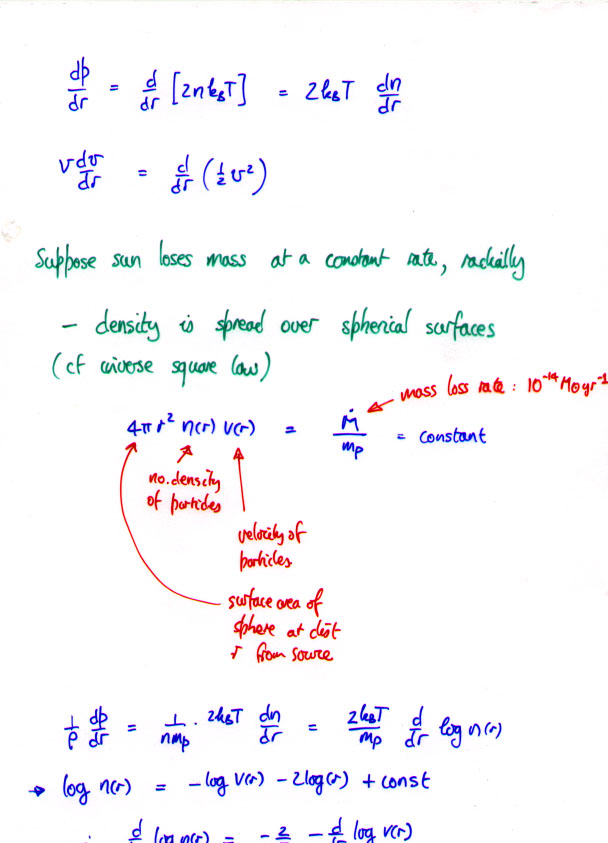 dp/dr = d/dr [2nk_BT] = 2k_BT dn/dr
v dv/dr = d/dr (½ v²)
Suppose sun loses mass at a constant rate, radially
– density is spread over spherical surfaces
(cf inverse square law)
mass loss rate : 10⁻¹⁴ M⊙ yr⁻¹
4π r² n(r) v(r) = Ṁ/m_p = constant
no. density
of particles
velocity of
particles
surface area of
sphere at dist
r from source
1/ρ dp/dr = 1/(nm_p) · 2k_BT dn/dr = 2k_BT/m_p d/dr log n(r)
→ log n(r) = -log v(r) - 2log(r) + const
d/dr log n(r) = - 2/r - d/dr log v(r)